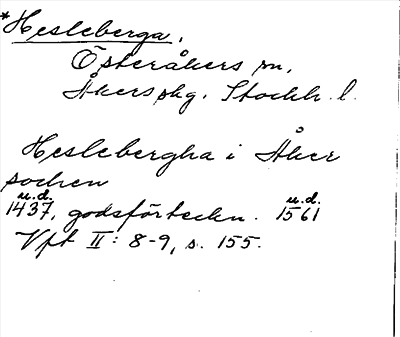 *Hesleberga.
Österåkers sn.
Åkers skg. Stockh. l.
Heslebergha i Åker
socken
u.d. u.d.
1437, godsförteckn. 1561
Vft II: 8-9, s. 155.